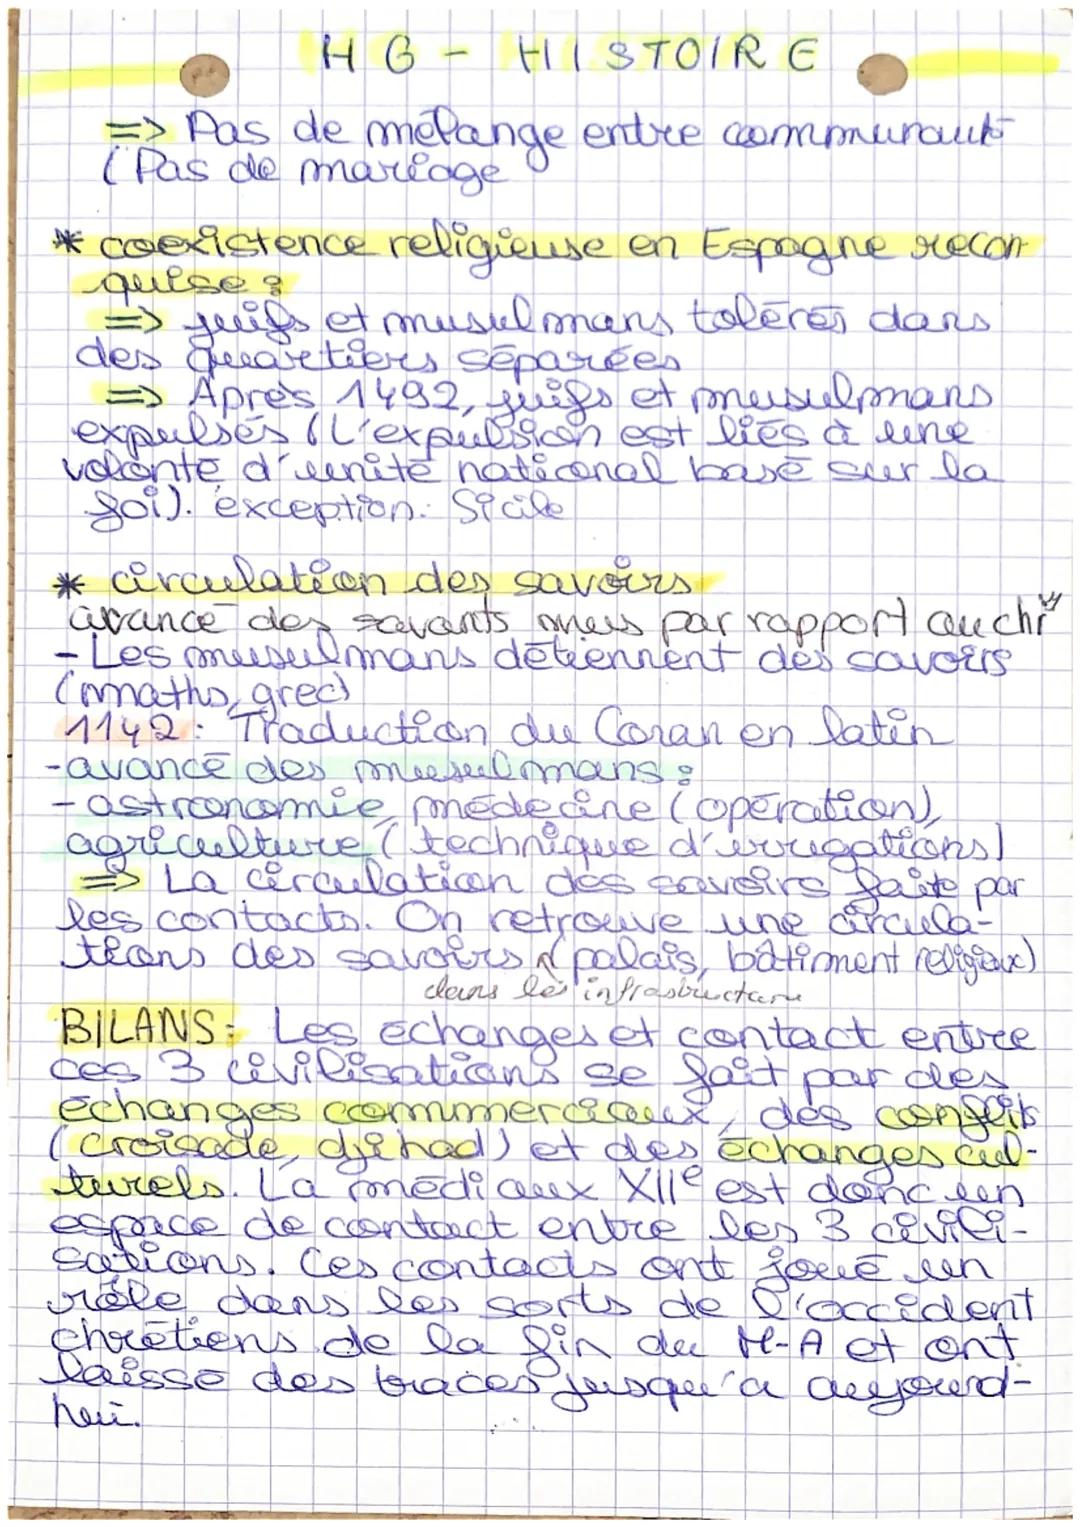 HG - HISTOIRE
=> Pas de mélange entre communauté
(Pas de mariage
* coexistence religieuse en Espagne recon-
quise :
=> juifs et musulmans tolérés dans
des quartiers séparées
=> Après 1492, juifs et musulmans
expulsés (L'expulsion est liés à une
volonté d'unité national basé sur la
foi). exception : Sicile
* circulation des savoirs
avance des savants mus par rapport au chr
- Les musulmans détiennent des savoirs
(maths, grec)
1142 : Traduction du Coran en latin
- avancé des musulmans :
- astronomie, médecine (opération),
agriculture (technique d'irrigations)
=> La circulation des savoirs faite par
les contacts. On retrouve une circula-
tions des savoirs (palais, bâtiment religieux)
dans les infrastructure
BILANS : Les échanges et contact entre
ces 3 civilisations se fait par des
échanges commerciaux, des conflits
(croisade, djihad) et des échanges cul-
turels. La médi aux XIIe est donc un
espace de contact entre les 3 civili-
sations. Ces contacts ont joué un
rôle dans les sorts de l'occident
chrétiens de la fin du M-A et ont
laissé des traces jusqu'a aujourd-
hui.